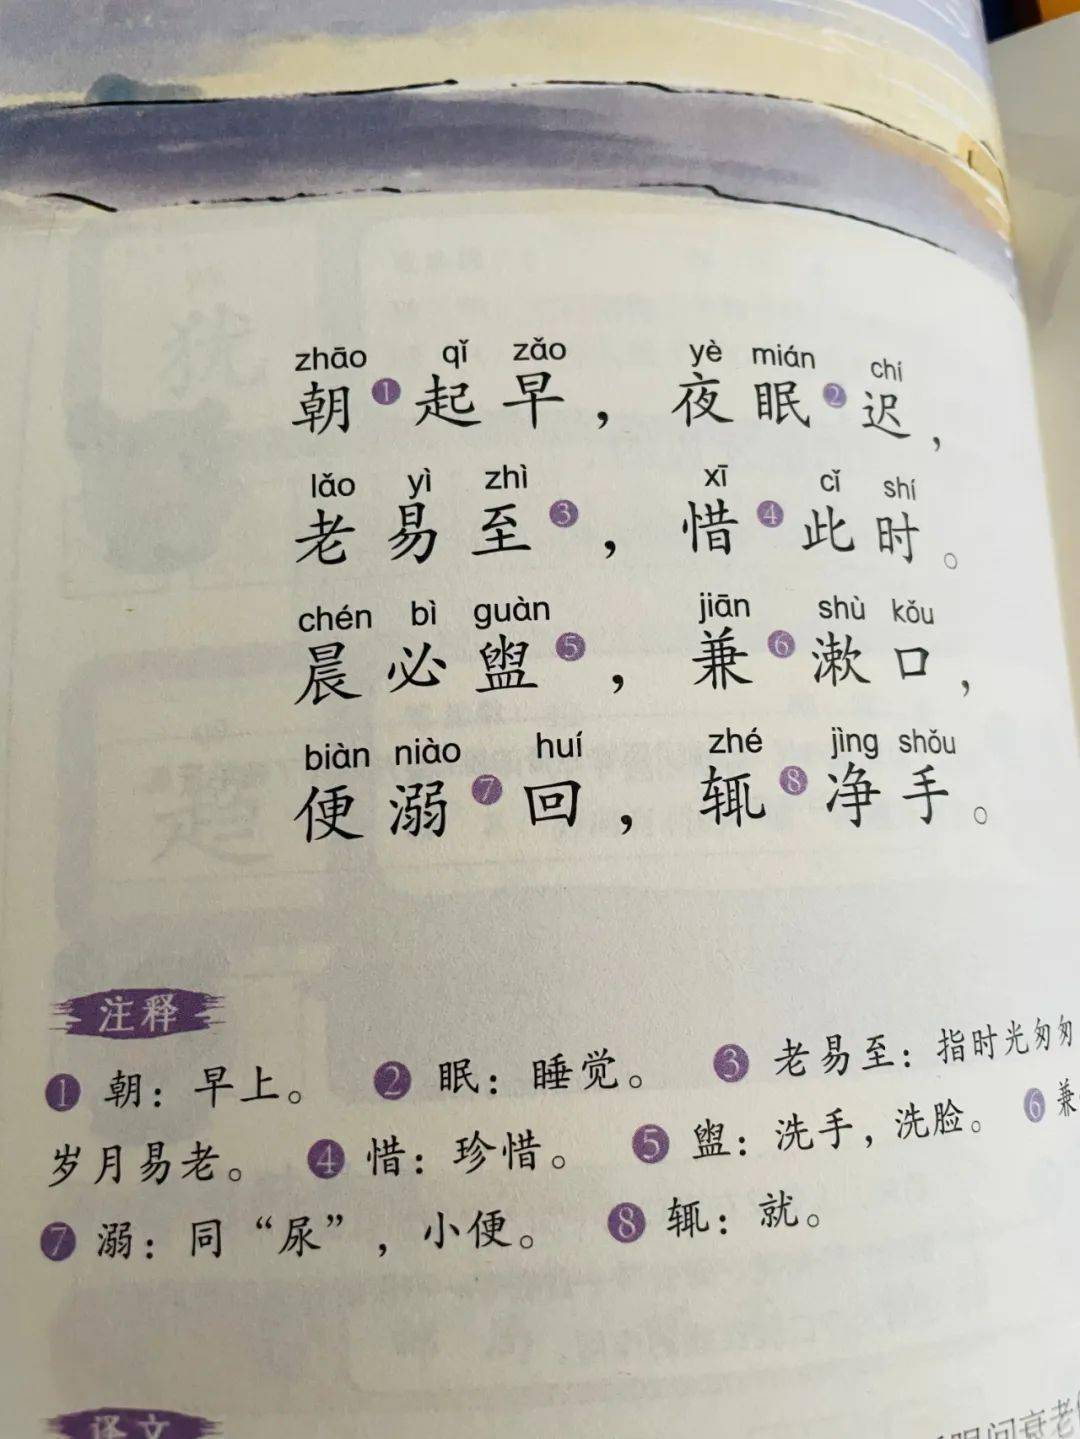 zhāo qǐ zǎo yè mián chí
朝❶起早，夜眠❷迟，
lǎo yì zhì xī cǐ shí
老易至❸，惜❹此时。
chén bì guàn jiān shù kǒu
晨必盥❺，兼❻漱口，
biàn niào huí zhé jìng shǒu
便溺❼回，辄❽净手。
注释
❶ 朝：早上。 ❷ 眠：睡觉。 ❸ 老易至：指时光匆匆
岁月易老。 ❹ 惜：珍惜。 ❺ 盥：洗手，洗脸。 ❻ 兼
❼ 溺：同“尿”，小便。 ❽ 辄：就。
译文